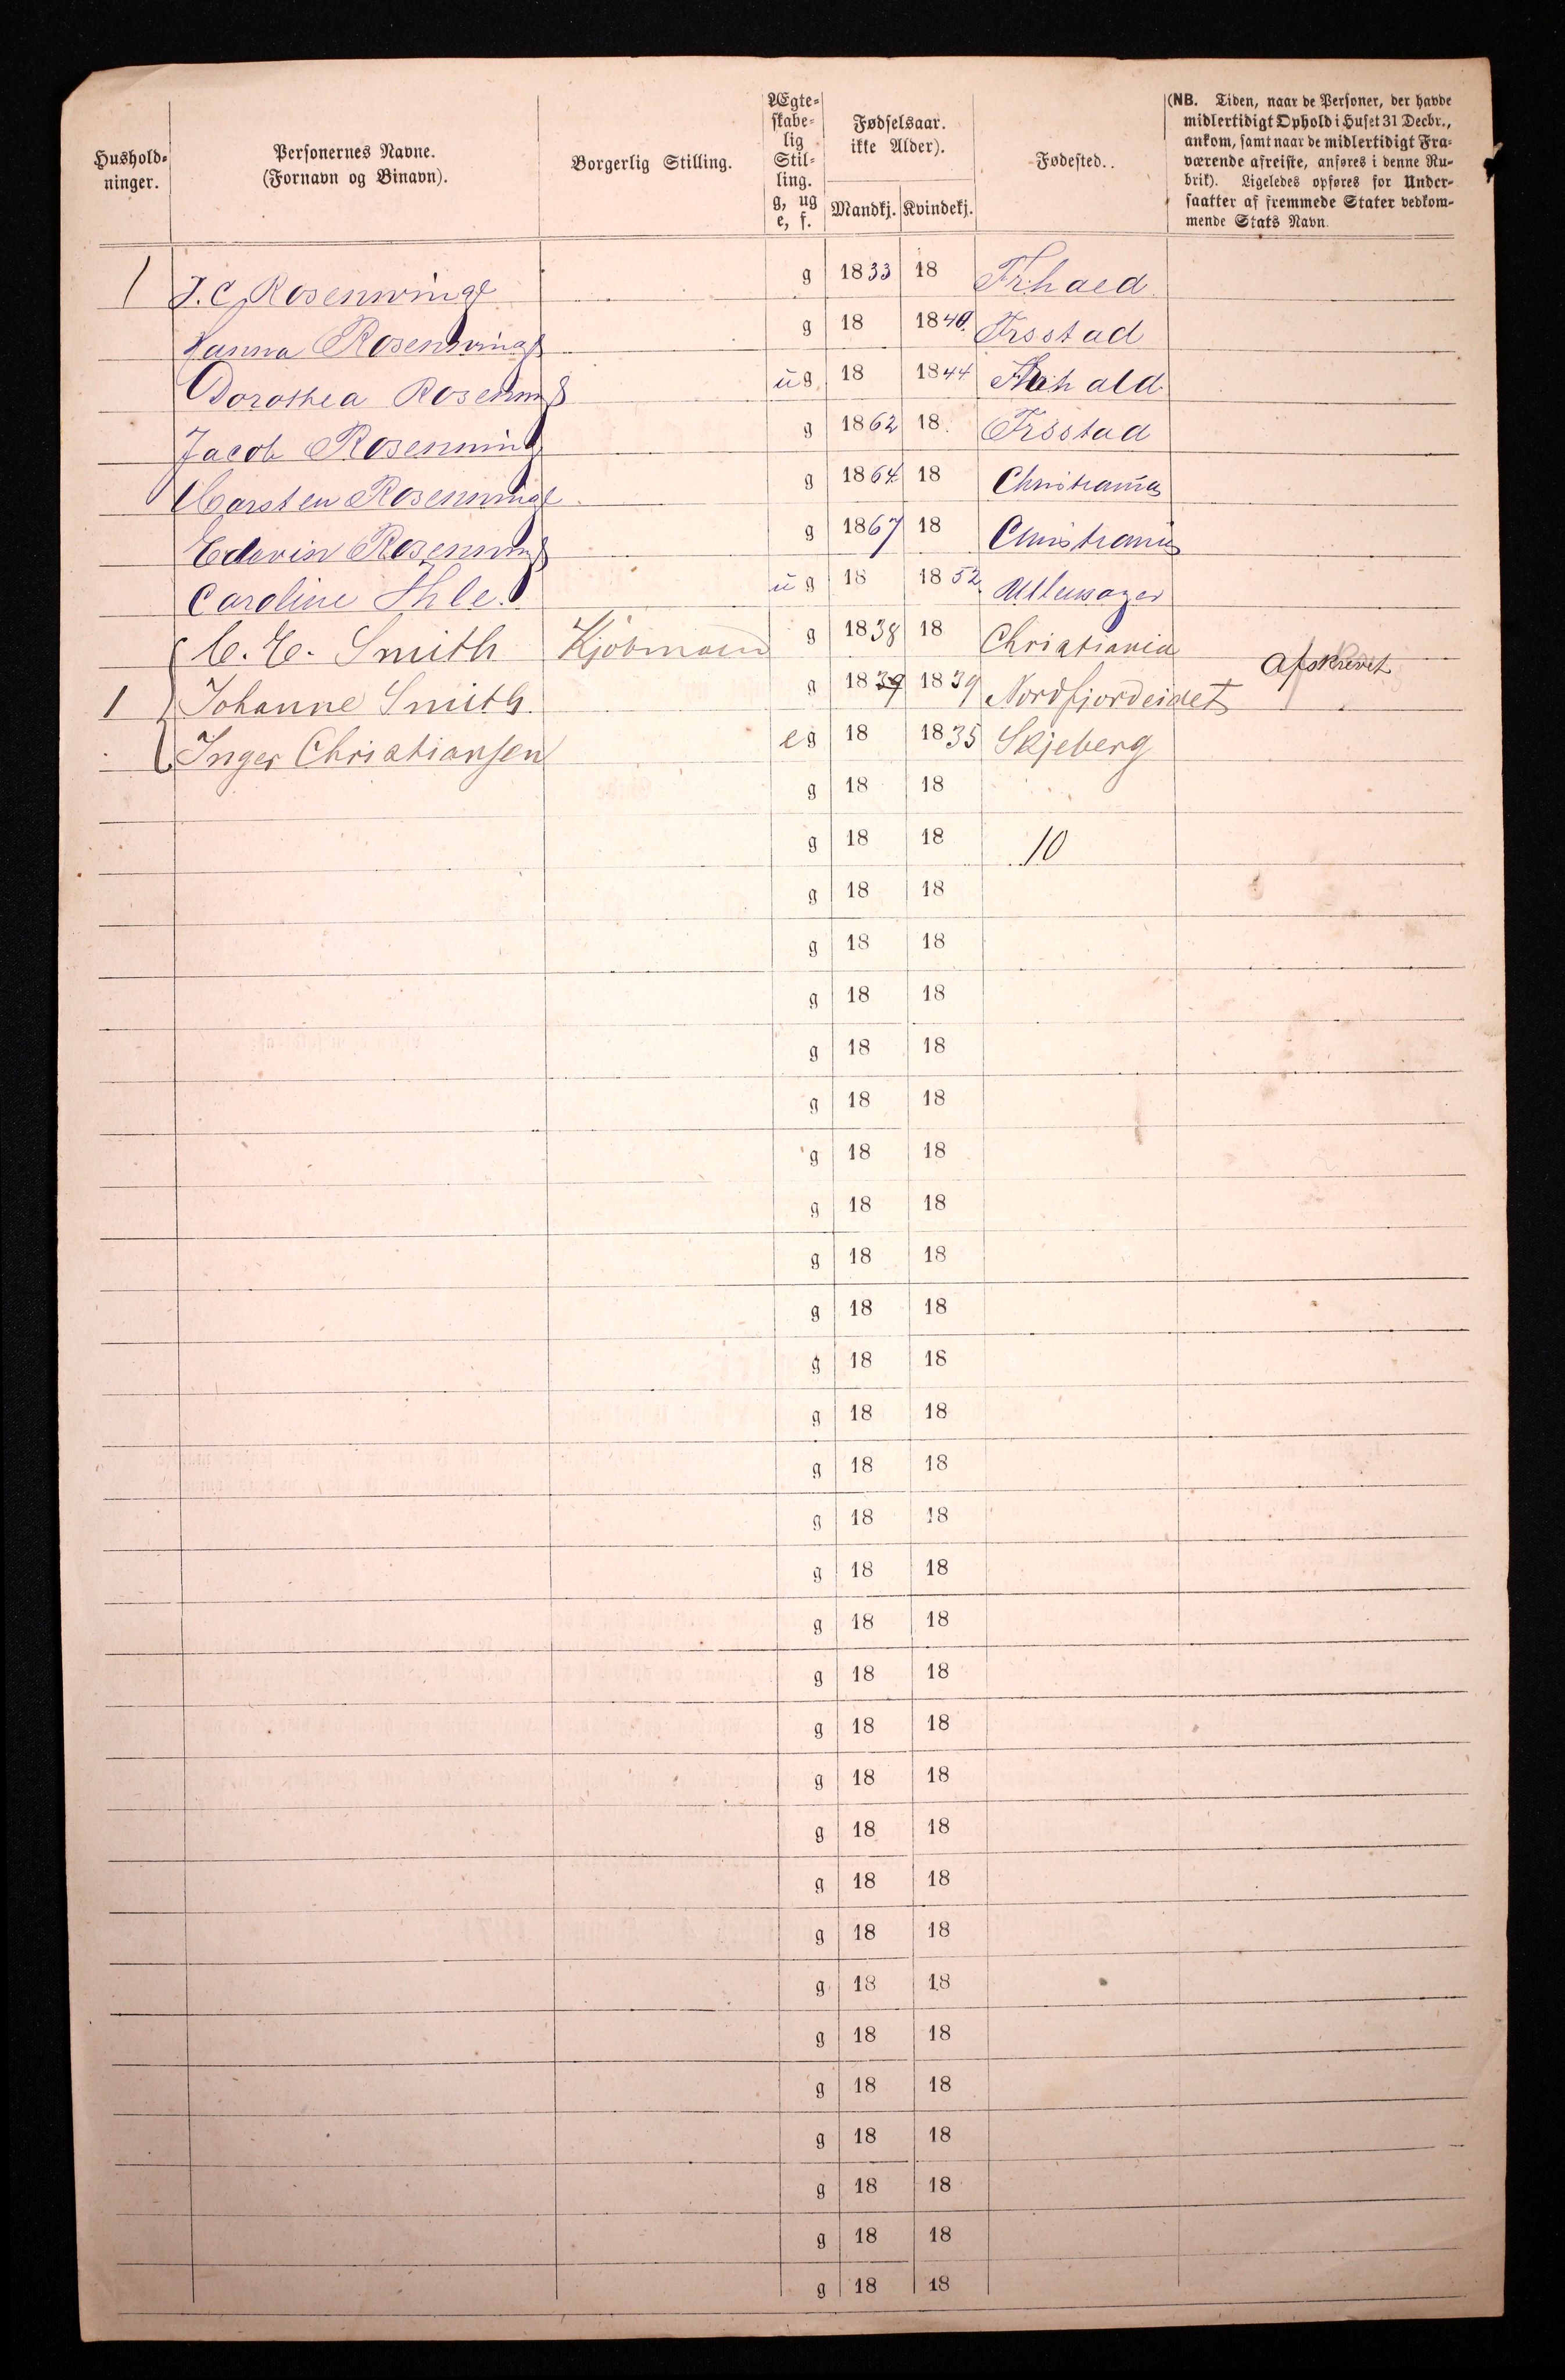 Hushold-
ninger.
Personernes Navne.
(Fornavn og Binavn).
Borgerlig Stilling.
Ægte-
skabe-
lig
Stil-
ling.
g, ug
e, f.
Fødselsaar.
ikke Alder).
Mandkj. Kvindekj.
Fødested..
(NB. Tiden, naar de Personer, der havde
midlertidigt Ophold i Huset 31 Decbr.,
ankom, samt naar de midlertidigt Fra-
værende afreiste, anføres i denne Ru-
brik). Ligeledes opføres for Under-
saatter af fremmede Stater vedkom-
mende Stats Navn.
1 J. C. Rosenwinge g 1833 18 Frhald
Hanna Rosenwinge g 18 1840. Frsstad
Dorothea Rosenwing ug 18 1844 Frhald
Jacob Rosenwing g 1862 18 Frsstad
Carsten Rosenwinge g 1864 18 Christiania
Edevin Rosenwing g 1867 18 Christiania
Caroline Ihle. ug 18 1852 Ullensager
C. E. Smith Kjöbmand g 1838 18 Christiania
Afskrevet
1 Johanne Smith. g 1839 1839 Nordfjordeidet
Inger Christiansen eg 18 1835 Skjeberg
g 18 18
g 18 18 10
g 18 18
g 18 18
g 18 18
g 18 18
g 18 18
g 18 18
g 18 18
g 18 18
g 18 18
g 18 18
g 18 18
g 18 18
g 18 18
g 18 18
g 18 18
g 18 18
g 18 18
g 18 18
g 18 18
g 18 18
g 18 18
g 18 18
g 18 18
g 18 18
g 18 18
g 18 18
g 18 18
g 18 18